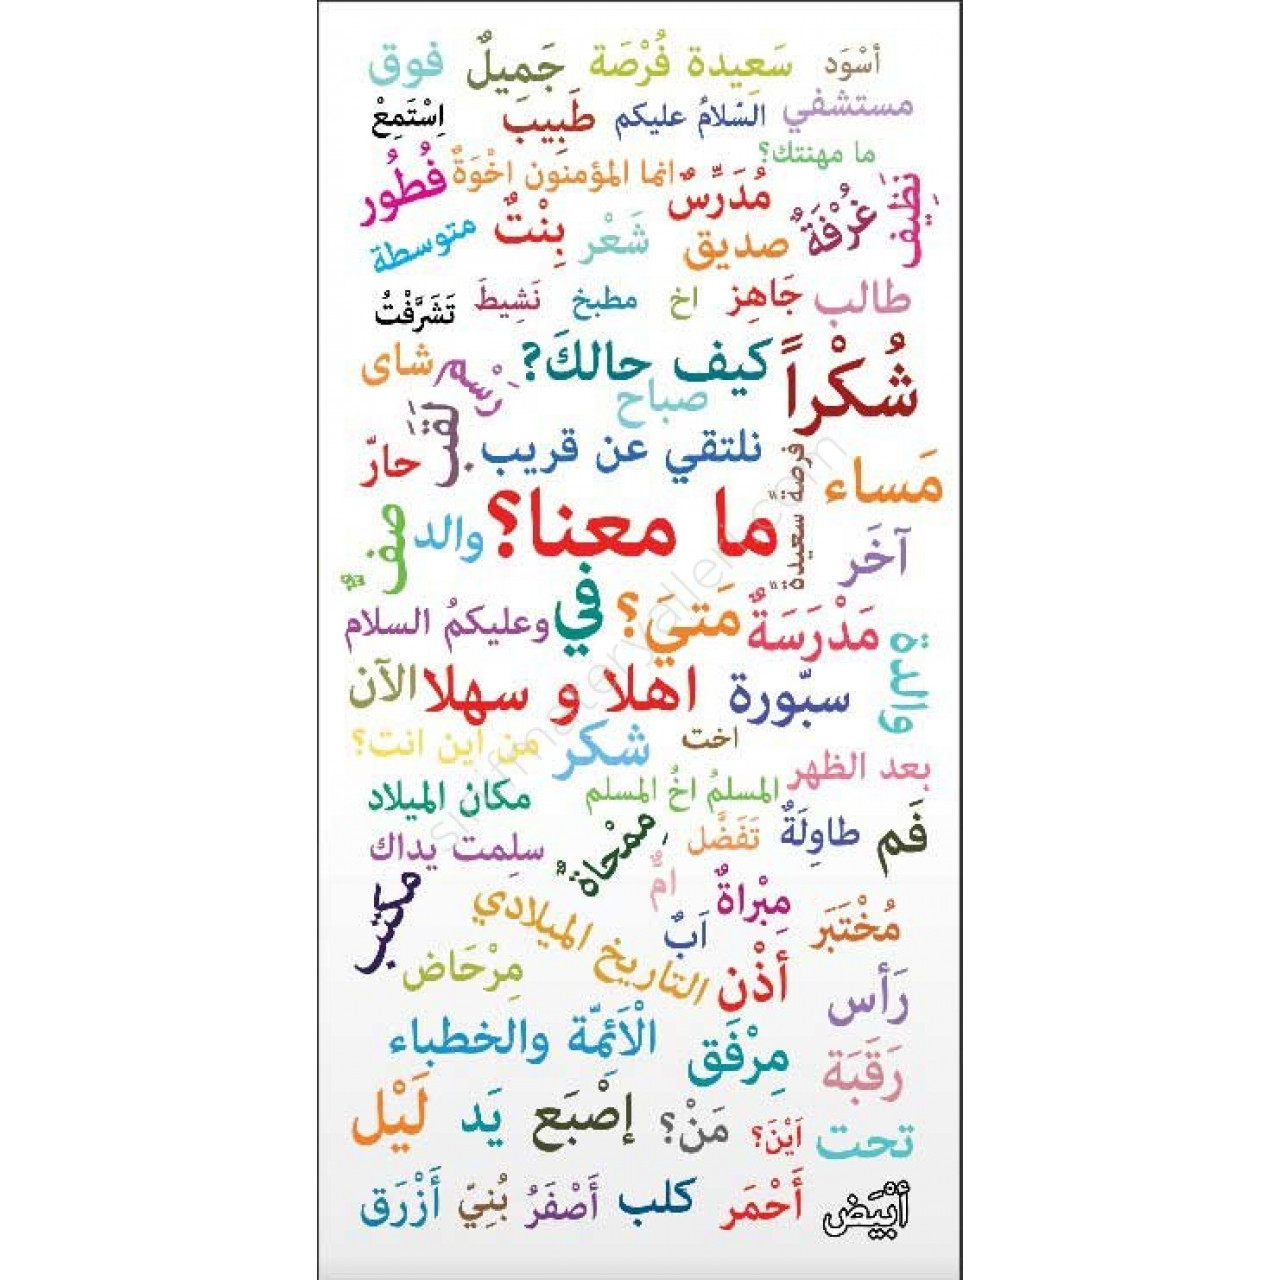 أسْوَد سَعِيدة فُرْصَة جَمِيلٌ فوق
مستشفي السّلامُ عليكم طَبِيب اِسْتَمِعْ
ما مهنتك؟
انما المؤمنون اخْوَةٌ فُطُور
نَظِيف غُرْفَةٌ مُدَرِّسٌ
صديق شَعْر بِنْتٌ متوسطة
طالب جَاهِز اخ مطبخ نَشِيطَ تَشَرَّفْتُ
شُكْراً كيف حالكَ؟ رَسْم شاى
صباح
نلتقي عن قريب لَقَب حارّ
مَساء فرصةً سعيدةً
ما معنا؟ والد صفٌّ
آخَر
مَدْرَسَةٌ مَتيَ؟ في وعليكمُ السلام
والدة سبّورة اهلا و سهلا الآن
اخت شكر من اين انت؟
بعد الظهر
المسلمُ اخُ المسلم مكان الميلاد
فَم طاوِلَةٌ تَفَضَّل مِمْحاةٌ سلِمت يداك
امٌ مِبْراةٌ مكتب
مُخْتَبَر اَبٌ التاريخ الميلادي
رَأس أذْن مِرْحَاض
الْاَئِمّة والخطباء
رَقَبَة مِرْفَق
تحت اَيْنَ؟ مَنْ؟ إصْبَع يَد لَيْل
أبْيَض أَحْمَر كلب أَصْفَرُ بُنِيّ أَزْرَق